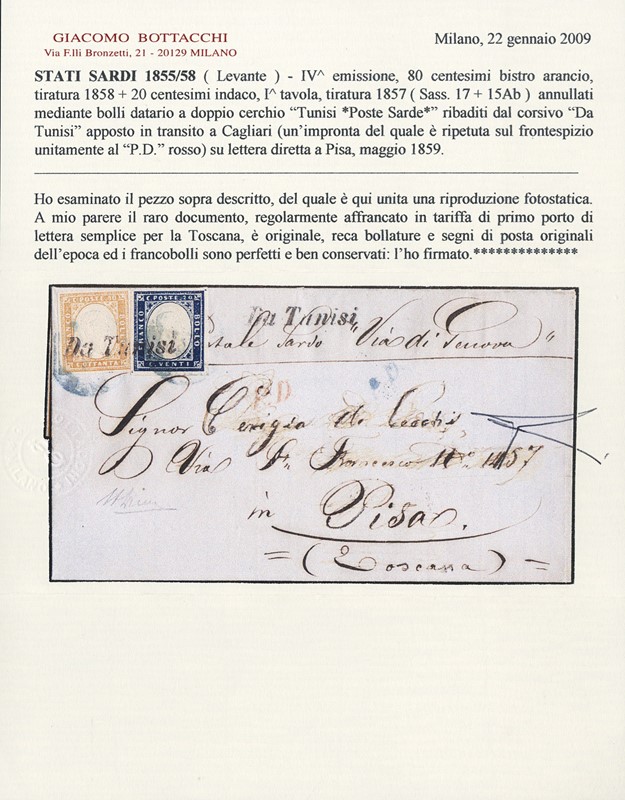 GIACOMO BOTTACCHI
Via F.lli Bronzetti, 21 - 20129 MILANO
Milano, 22 gennaio 2009
STATI SARDI 1855/58 ( Levante ) - IV^ emissione, 80 centesimi bistro arancio,
tiratura 1858 + 20 centesimi indaco, I^ tavola, tiratura 1857 ( Sass. 17 + 15Ab ) annullati
mediante bolli datario a doppio cerchio “Tunisi *Poste Sarde*” ribaditi dal corsivo “Da
Tunisi” apposto in transito a Cagliari (un’impronta del quale è ripetuta sul frontespizio
unitamente al “P.D.” rosso) su lettera diretta a Pisa, maggio 1859.
Ho esaminato il pezzo sopra descritto, del quale è qui unita una riproduzione fotostatica.
A mio parere il raro documento, regolarmente affrancato in tariffa di primo porto di
lettera semplice per la Toscana, è originale, reca bollature e segni di posta originali
dell’epoca ed i francobolli sono perfetti e ben conservati: l’ho firmato.**************
C. POSTE 80
FRANCO
BOLLO
C. OTTANTA
C. POSTE 20
FRANCO
BOLLO
C. VENTI
Da Tunisi
Da Tunisi
Sardo "Via di Genova"
PD
Signor
Via 1457
in Pisa.
= (Toscana) =